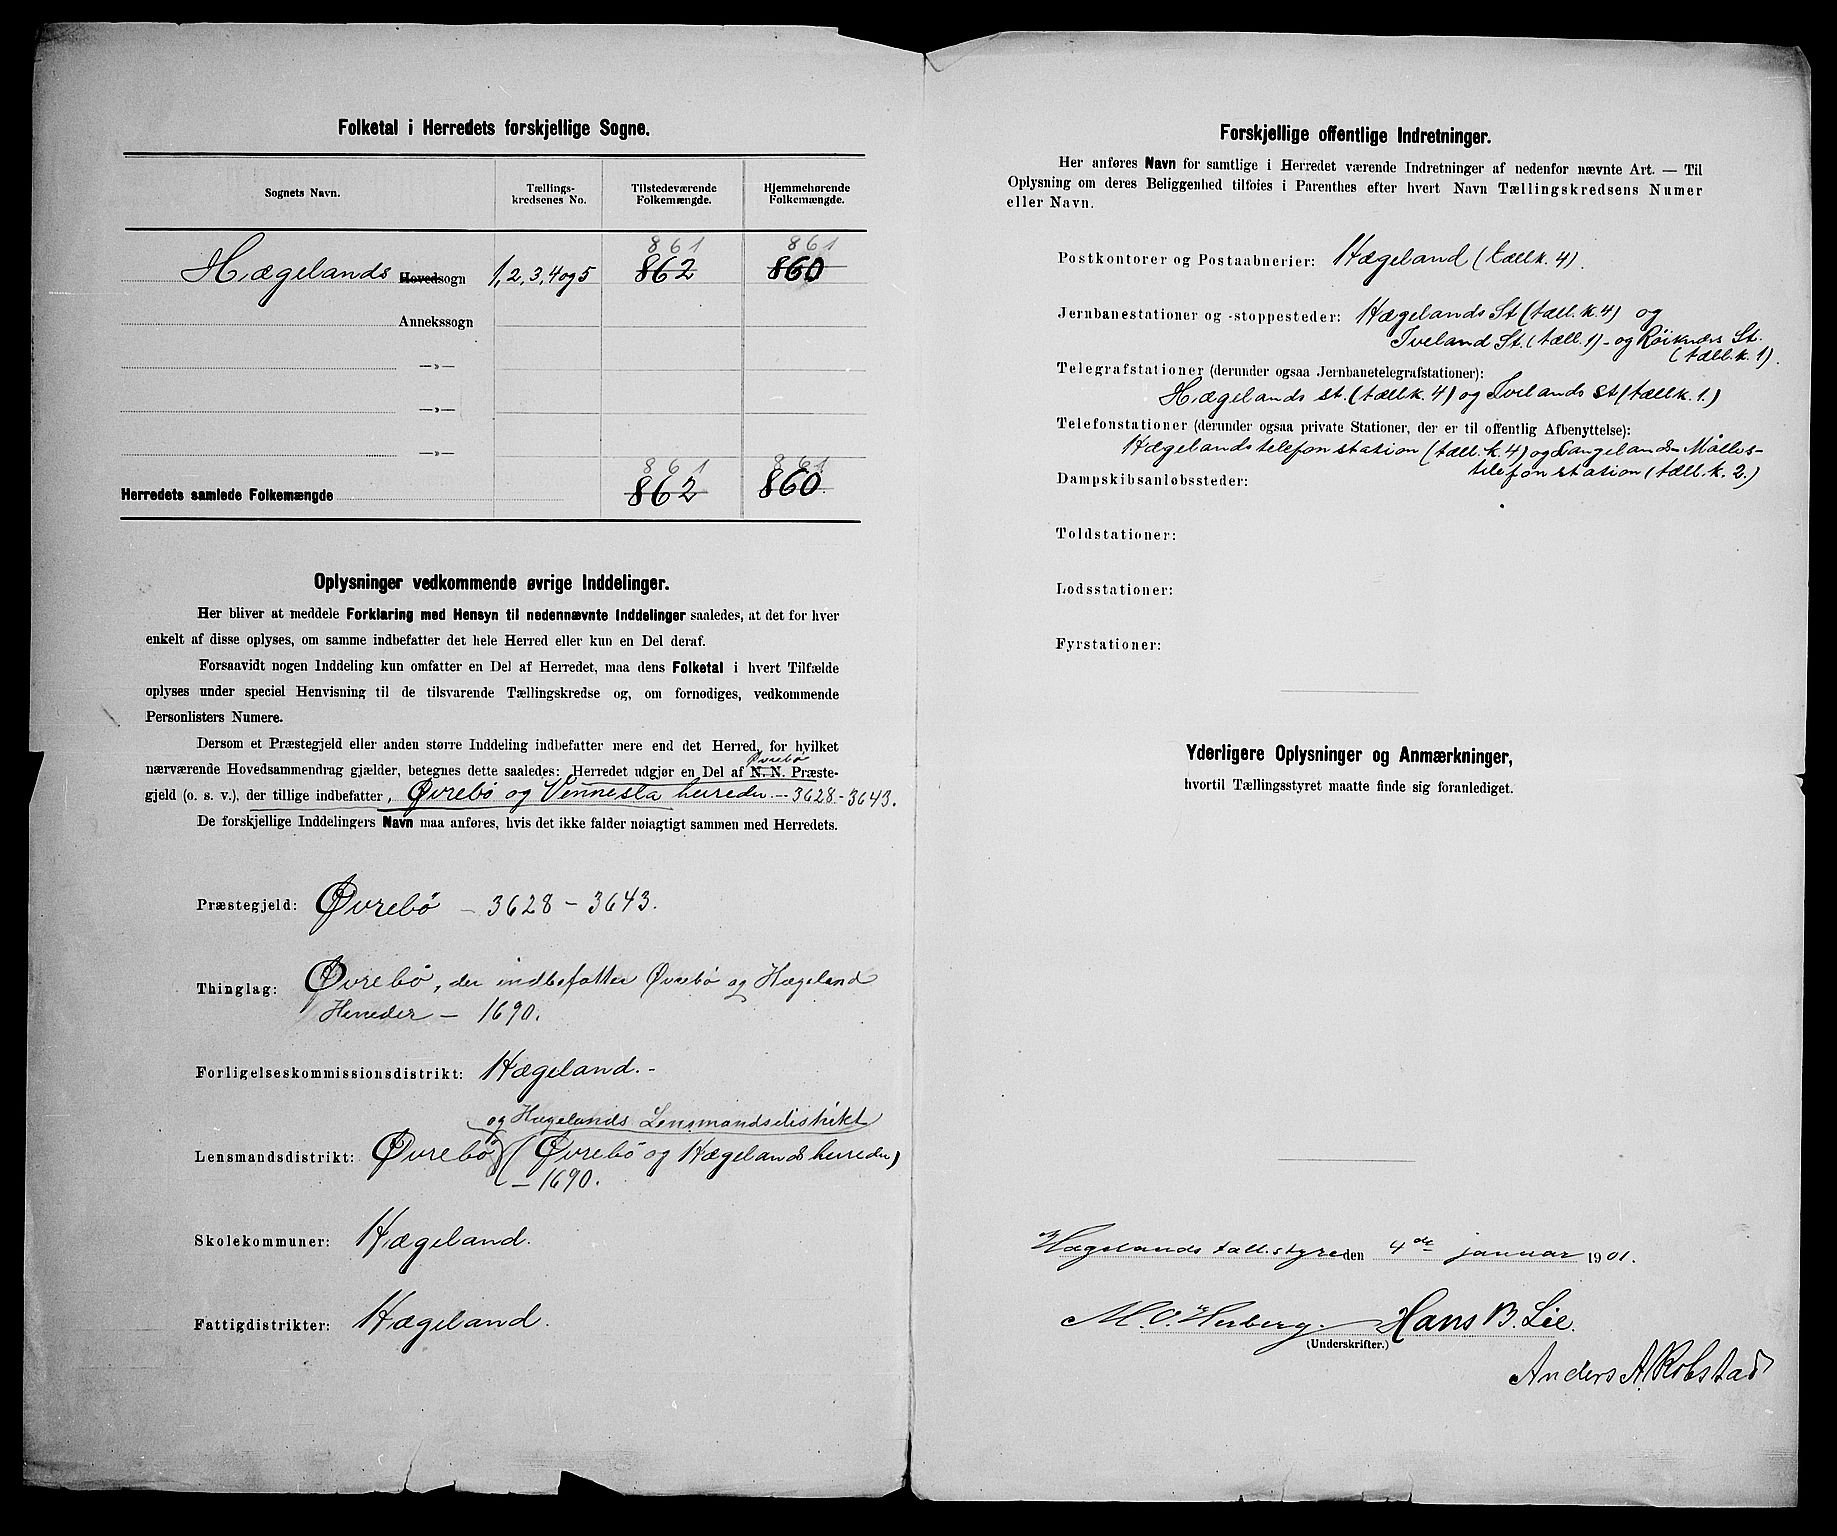 Folketal i Herredets forskjellige Sogne.
Sognets Navn.
Tællings-
kredsenes No.
Tilstedeværende
Folkemængde.
Hjemmehørende
Folkemængde.
861 861
Hægelands Hovedsogn 1,2,3,4 og 5 862 860
Annekssogn
—»—
—»—
—»—
861 861
Herredets samlede Folkemængde 862 860.
Oplysninger vedkommende øvrige Inddelinger.
Her bliver at meddele Forklaring med Hensyn til nedennævnte Inddelinger saaledes, at det for hver
enkelt af disse oplyses, om samme indbefatter det hele Herred eller kun en Del deraf.
Forsaavidt nogen Inddeling kun omfatter en Del af Herredet, maa dens Folketal i hvert Tilfælde
oplyses under speciel Henvisning til de tilsvarende Tællingskredse og, om fornødiges, vedkommende
Personlisters Numere.
Dersom et Præstegjeld eller anden større Inddeling indbefatter mere end det Herred, for hvilket
Øvrebö
nærværende Hovedsammendrag gjælder, betegnes dette saaledes: Herredet udgjør en Del af N. N. Præste-
gjeld (o. s. v.), der tillige indbefatter, Øvrebö og Vennesla herreder. — 3628 - 3643.
De forskjellige Inddelingers Navn maa anføres, hvis det ikke falder nøiagtigt sammen med Herredets.
Præstegjeld: Øvrebö — 3628 — 3643.
Thinglag: Øvrebö, der indbefatter Øvrebö og Hægeland
Herreder — 1690.
Forligelseskommissionsdistrikt: Hægeland. -
og Hægelands Lensmandsdistrikt
Lensmandsdistrikt: Øvrebö (Øvrebö og Hægelands herreder)
— 1690.
Skolekommuner: Hægeland.
Fattigdistrikter: Hægeland.
Forskjellige offentlige Indretninger.
Her anføres Navn for samtlige i Herredet værende Indretninger af nedenfor nævnte Art. — Til
Oplysning om deres Beliggenhed tilføies i Parenthes efter hvert Navn Tællingskredsens Numer
eller Navn.
Postkontorer og Postaabnerier: Hægeland (tællk. 4).
Jernbanestationer og -stoppesteder: Hægelands St (tæll. k. 4) og
Iveland St. (tæll. 1) - og Röiknæs St.
(tæll. k. 1).
Telegrafstationer (derunder ogsaa Jernbanetelegrafstationer):
Hægelands st. (tællk. 4) og Ivelands st (tællk. 1.)
Telefonstationer (derunder ogsaa private Stationer, der er til offentlig Afbenyttelse):
Hægelands telefonstation (tæll. k. 4) og
telefonstation (tæll. k. 2.)
Dampskibsanløbssteder:
Toldstationer:
Lodsstationer:
Fyrstationer:
Yderligere Oplysninger og Anmærkninger,
hvortil Tællingsstyret maatte finde sig foranlediget.
Hægelands tæll. styre den 4de januar 1901.
M. O. Herberg. Hans B. Lie.
(Underskrifter.)
Anders A Robstad